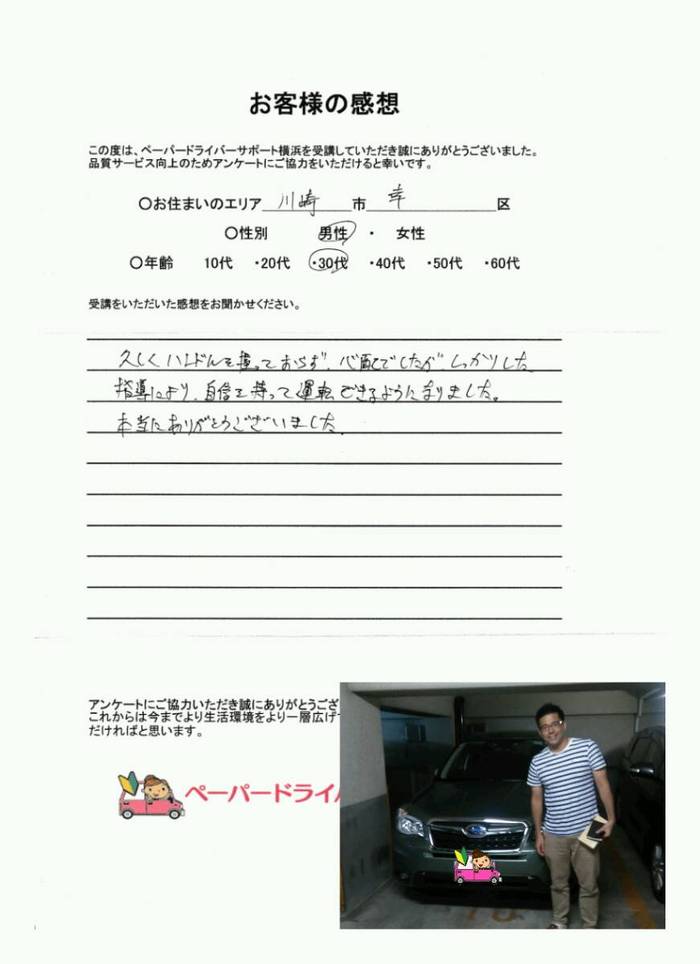 お客様の感想
この度は、ペーパードライバーサポート横浜を受講していただき誠にありがとうございました。
品質サービス向上のためアンケートにご協力をいただけると幸いです。
〇お住まいのエリア 川崎 市 幸 区
〇性別 男性 ・ 女性
〇年齢 10代 ・20代 ・30代 ・40代 ・50代 ・60代
受講をいただいた感想をお聞かせください。
久しくハンドルを握っておらず、心配でしたが、しっかりした
指導により、自信を持って運転できるようになりました。
本当にありがとうございました。
アンケートにご協力いただき誠にありがとうござ
これからは今までより生活環境をより一層広げ
だければと思います。
ペーパードライ